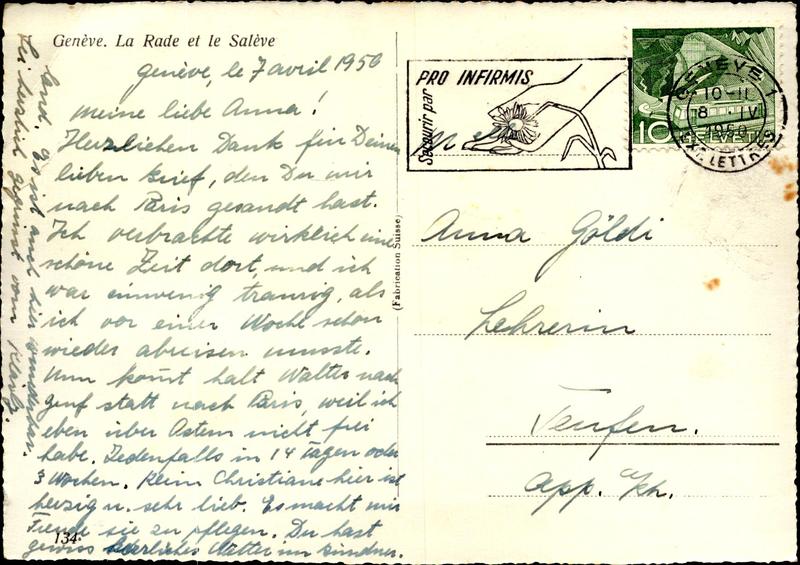 Genève. La Rade et le Salève
Genève, le 7 avril 1950
Meine liebe Anna!
Herzlichen Dank für Deinen
lieben Brief, den Du mir
nach Paris gesandt hast.
Ich verbrachte wirklich eine
schöne Zeit dort, und ich
war einwenig traurig, als
ich vor einer Woche schon
wieder abreisen musste.
Nun kommt halt Walter nach
Genf statt nach Paris, weil ich
eben über Ostern nicht frei
habe. Jedenfalls in 14 Tagen oder
3 Wochen. Klein Christiane hier ist
herzig u. sehr lieb. Es macht mir
Freude sie zu pflegen. Du hast
gewiss herrliches Wetter im Bündner-
land. Es ist auch hier wunderbar.
Sei herzlich gegrüsst von
134
(Fabrication Suisse)
PRO INFIRMIS
Secourir par
GENÈVE 1
10-11
8 IV
1950
EXP. LETTRES
10 HELVETIA
Anna Göldi
Lehrerin
Teufen.
App. A/Rh.